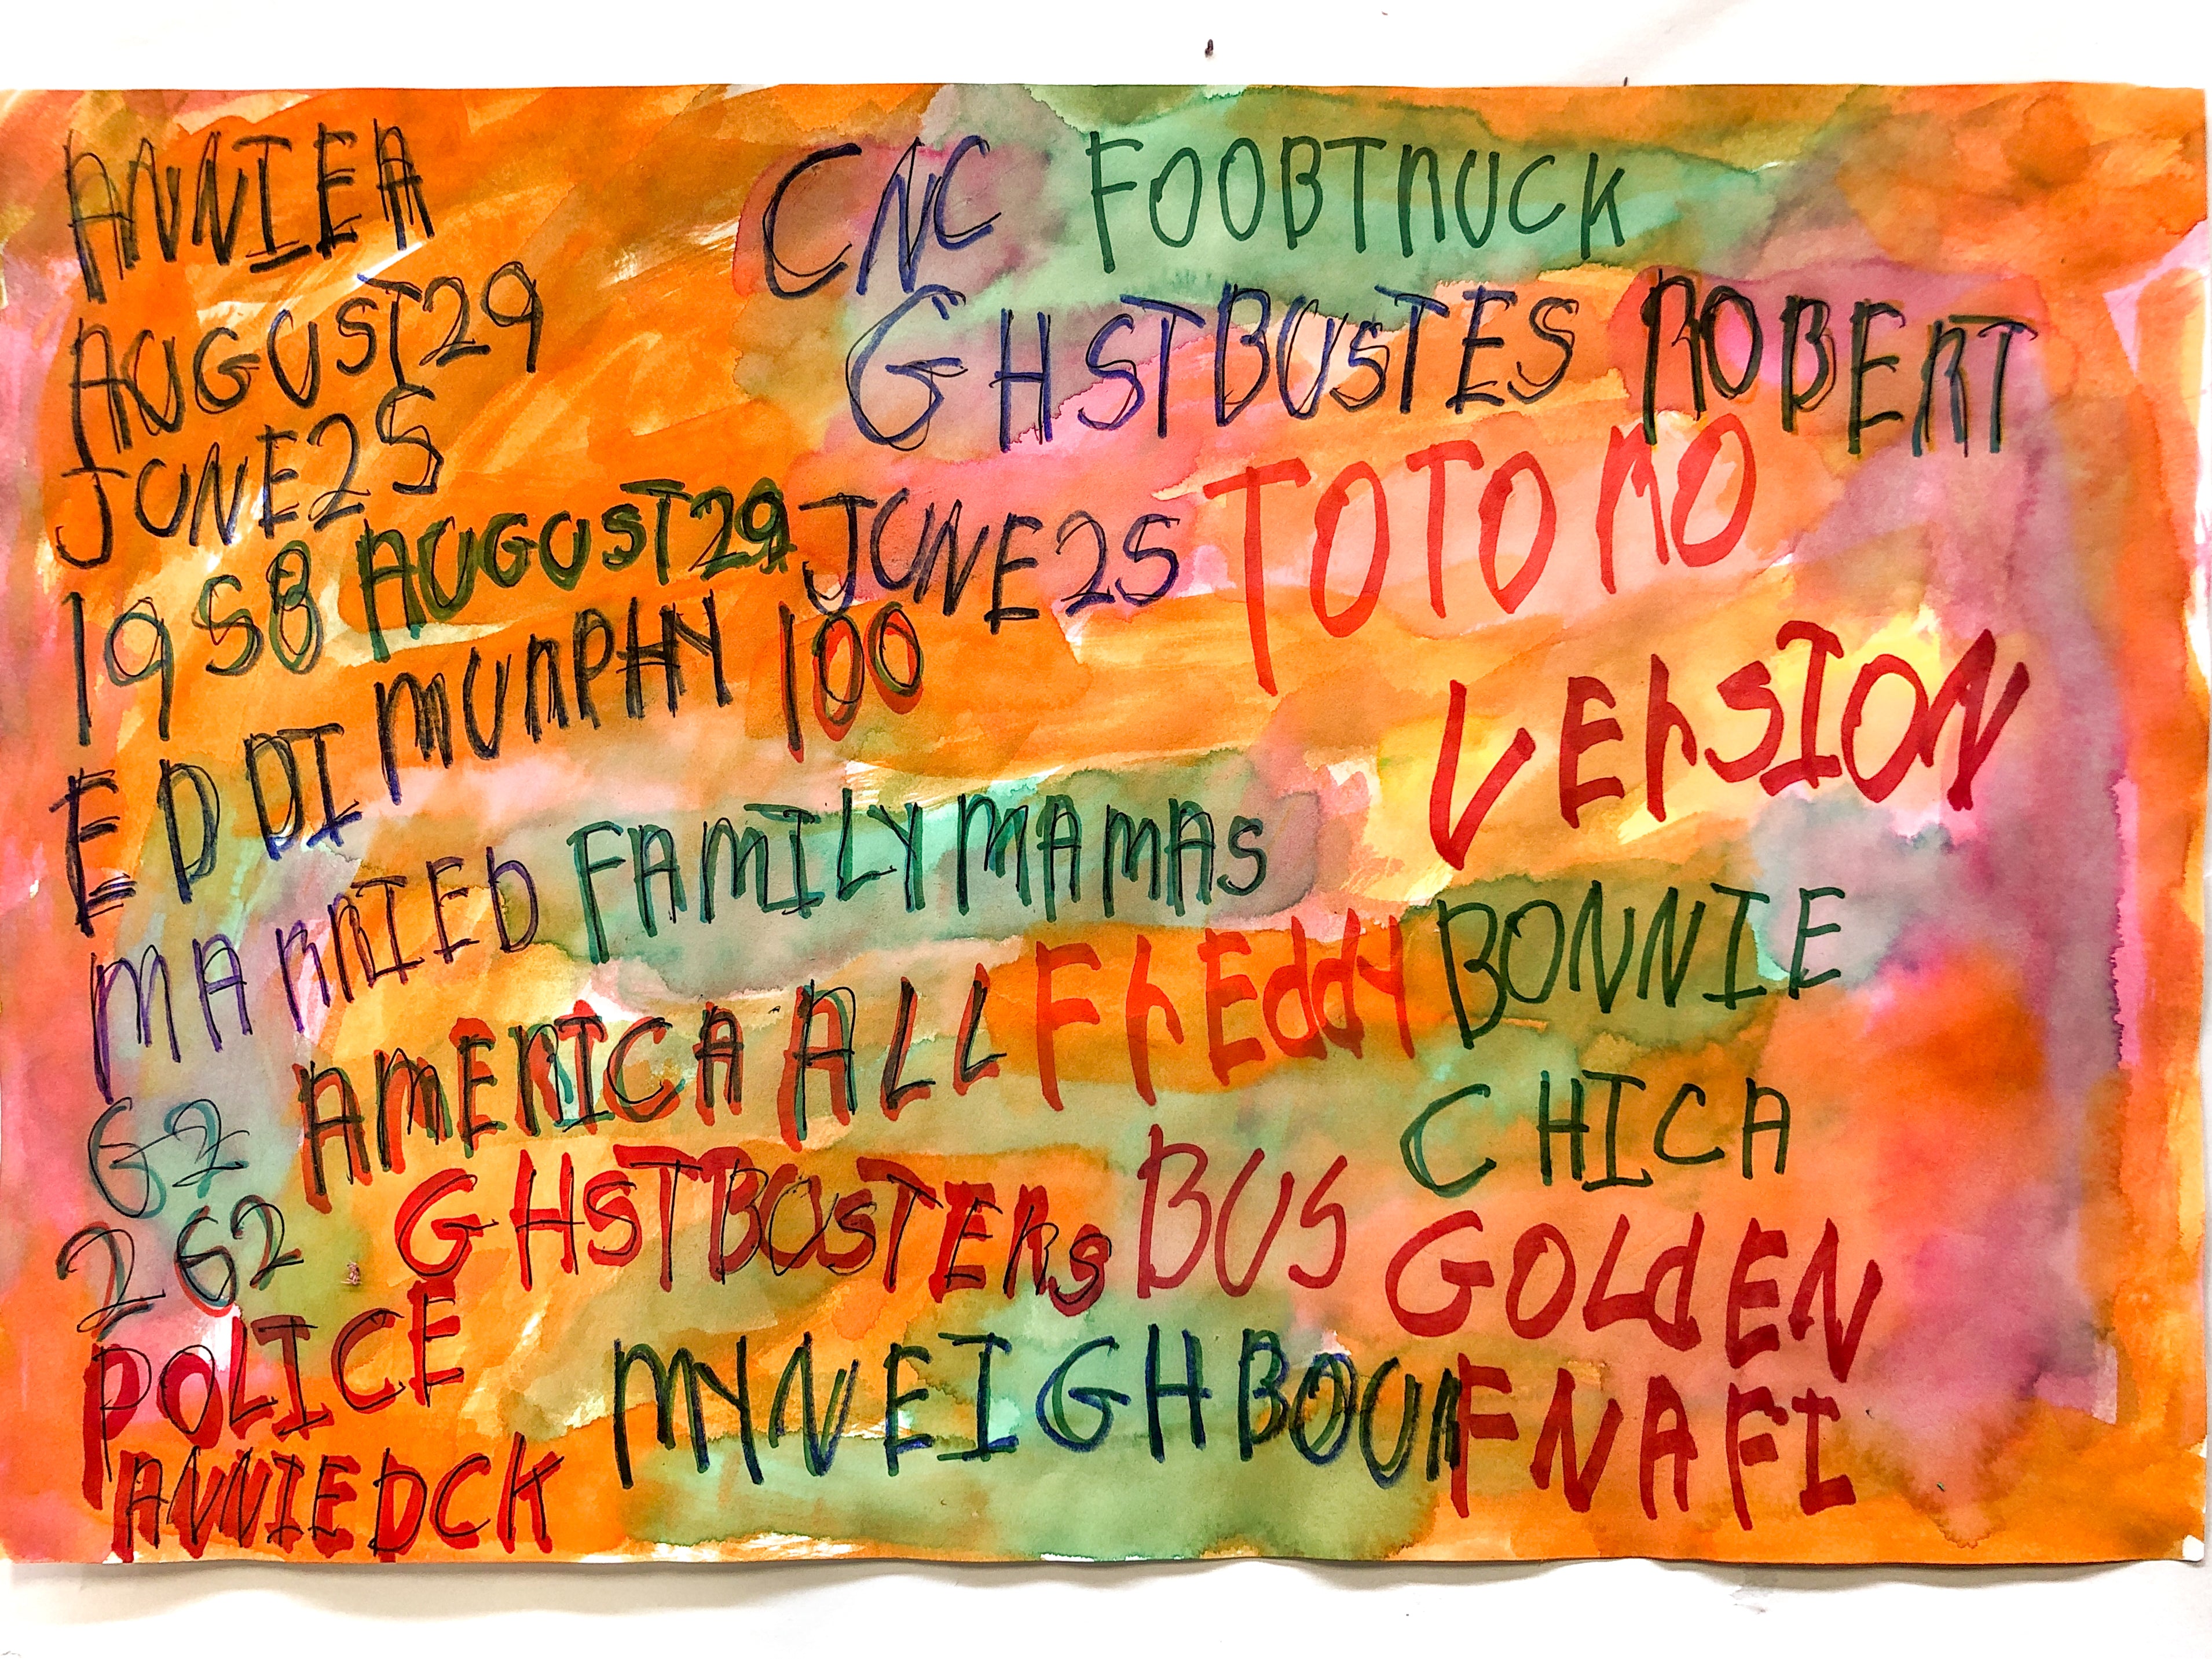 ANNIEA
CNC FOOBTRUCK
AUGUST29
GHSTBUSTES ROBERT
JUNE25
1958 AUGUST29 JUNE25 TOTORO
EDDI MURPHY 100
VERSION
MARRIED FAMILY MAMAS
AMERICA ALL FrEddy BONNIE
CHICA
262 GHSTBUSTERS BUS GOLdEN
POLICE
MYNEIGHBOUR FNAFI
ANNIEDCK